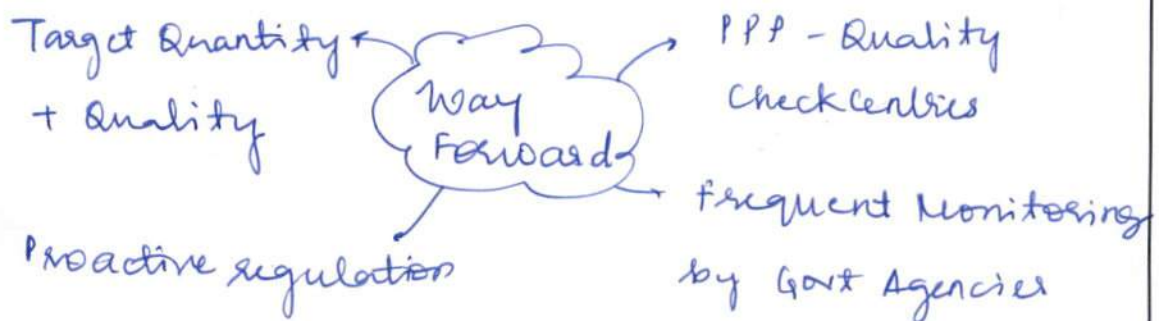 Target Quantity
+ Quality
Way
Forward
PPP - Quality
Check Centres
Proactive regulation
Frequent Monitoring
by Govt Agencies